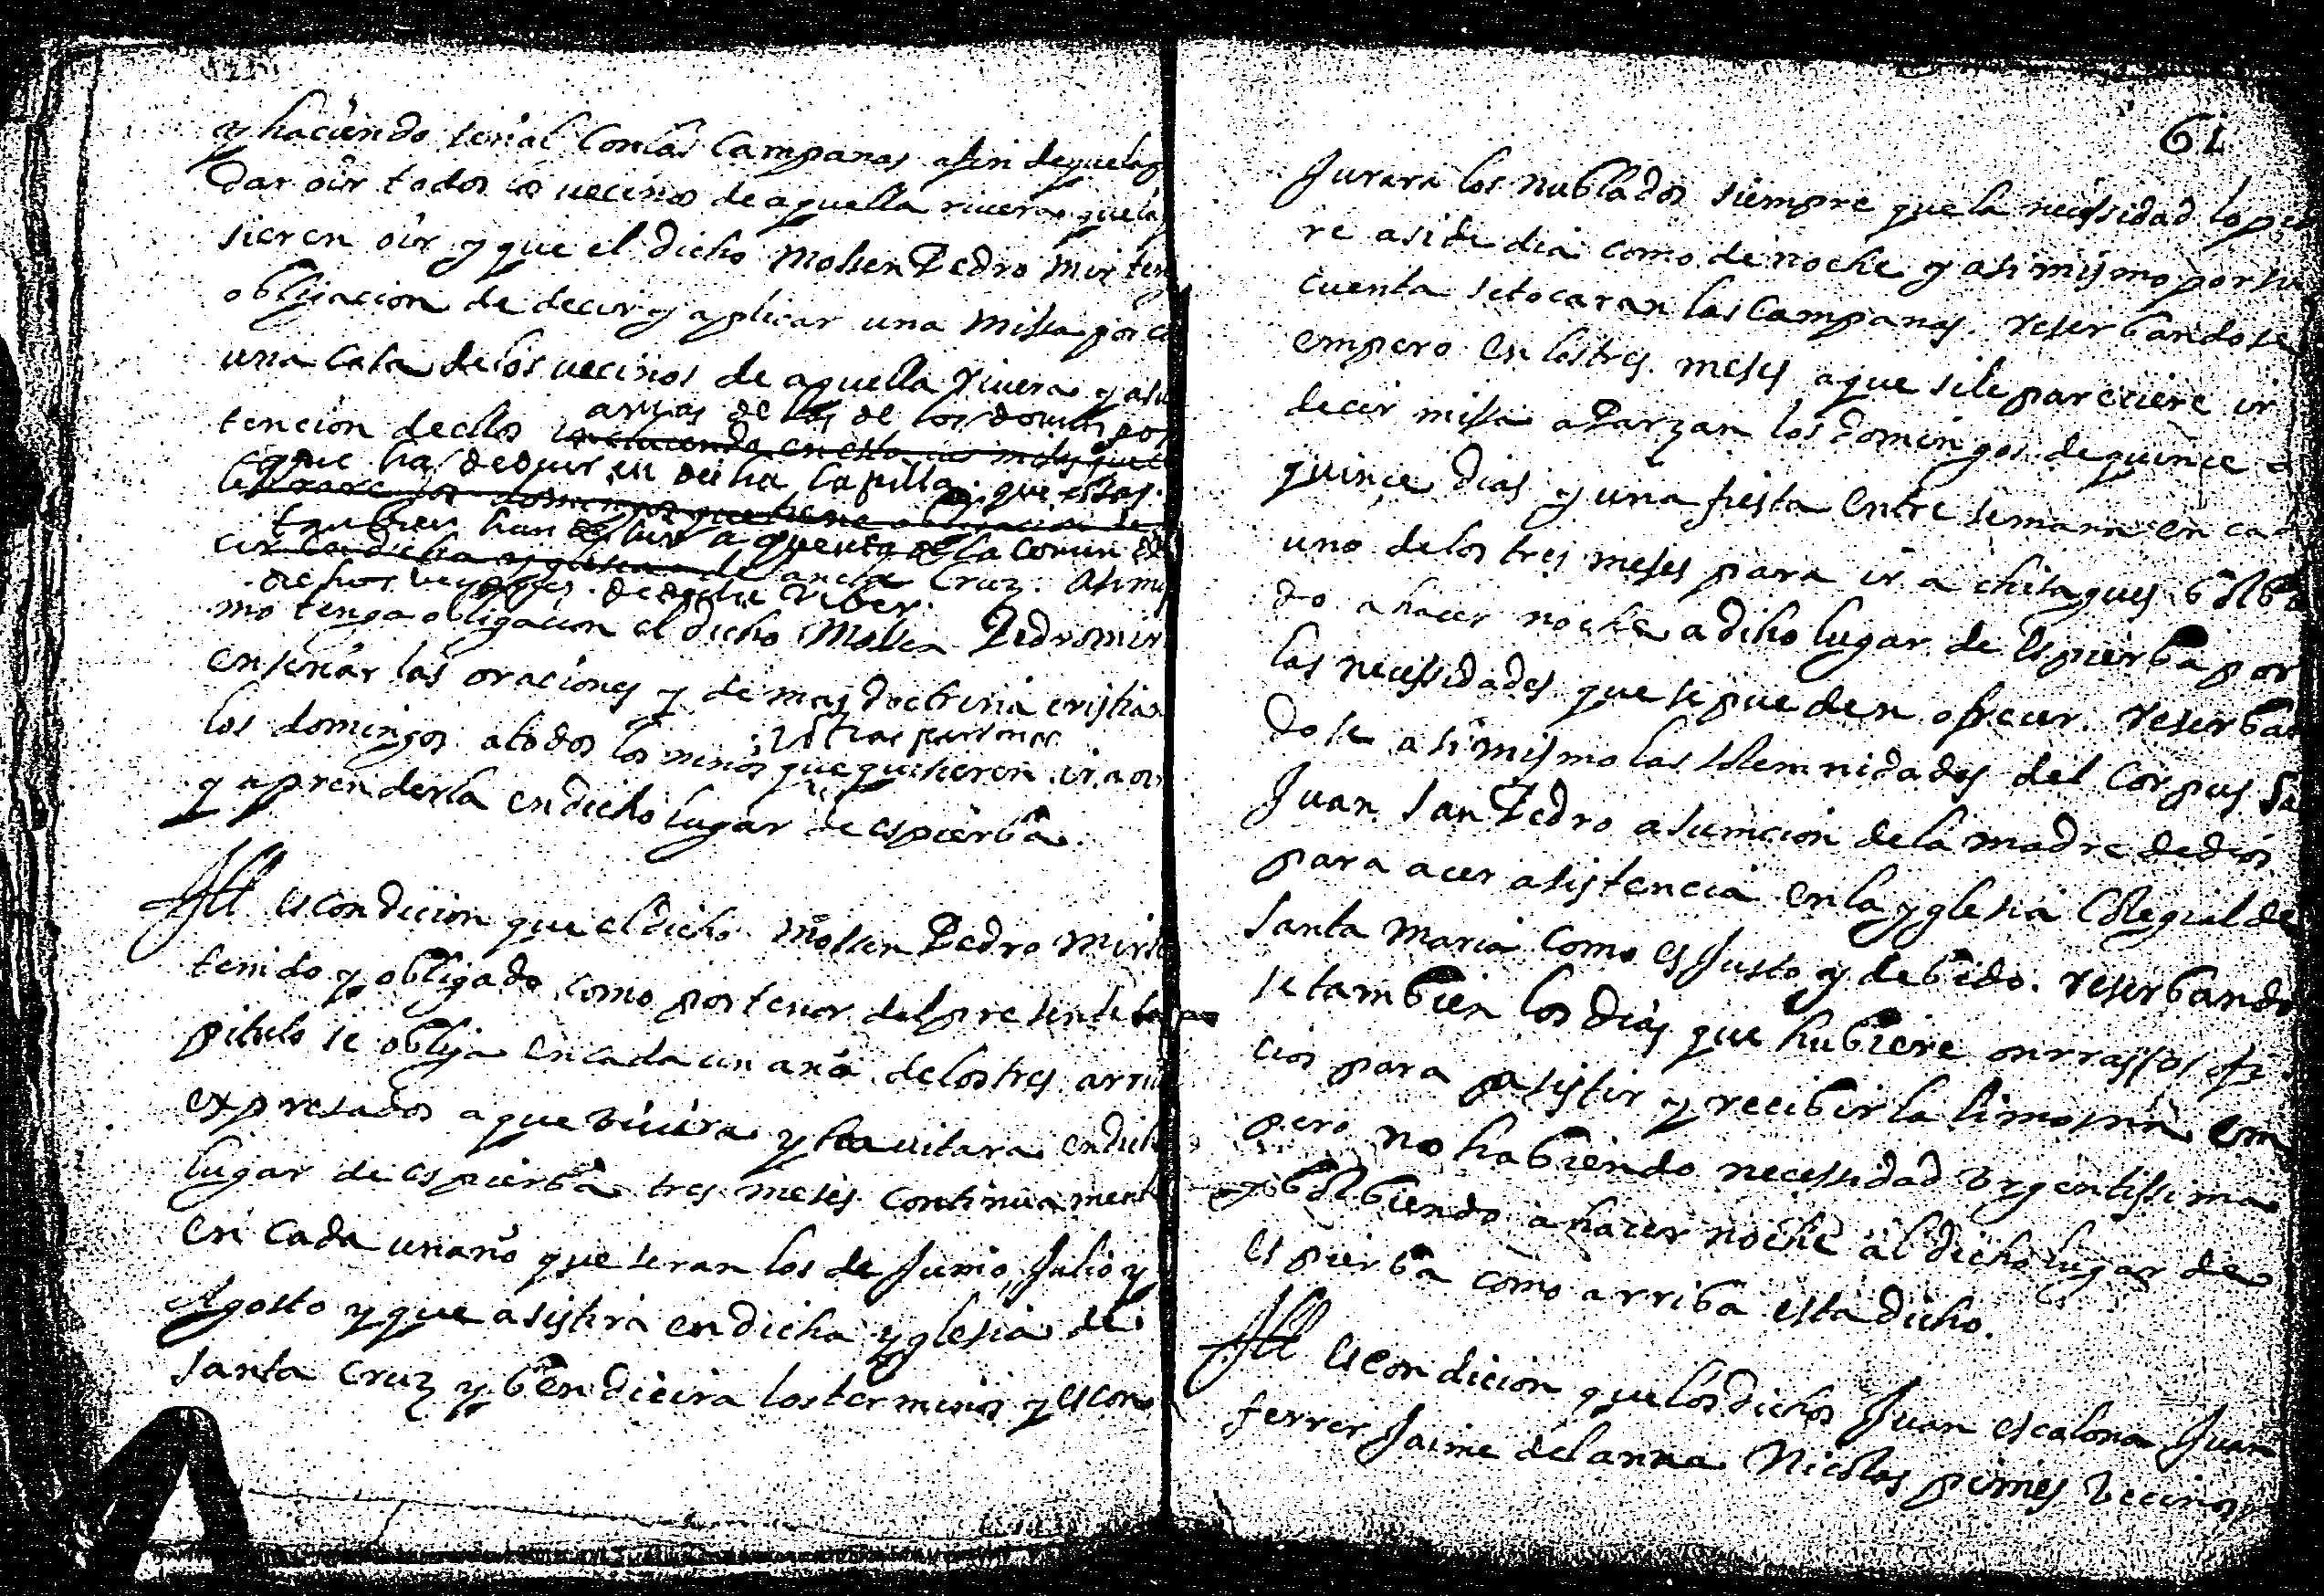 y haciendo senal Conlas Campanas afin dequelas
dar oir todos los vecinos de aquella rivera que la
sieren oir y que el dicho Mossen Pedro Mir ten
obligacion de decir y aplicar una Missa por ca
una Casa delos vecinos de aquella Rivera y asu
artas de las de los domin por
tencion dellos incluiendo en esta las misas que ce
que ha dedecir en dicha Capilla que estas
lebrare los domingos que tiene obligacion de
tambien han de ser a quenta de la comun de
cir en dicha yglesia de Sancta Cruz. Asimis
dichos vecinos de dicha Riber.
mo tenga obligacion el dicho Mossen Pedro mir
ensenar las oraciones y de mas doctrina cristian
los domingos atodos los ninos que quisieren ir a oir
y otras personas
y aprenderla endicho lugar de espierba.
Itt es condicion que el dicho mossen Pedro Mir
tenido y obligado como por tenor del presente ca
pitulo se obliga en cada un ano delos tres arri
expresados a que viuira y havitara endicho
lugar de espierba tres meses continuamente
en cada un ano que seran los de Junio Julio y
Agosto y que asistira en dicha yglesia de
santa Cruz y bendicira los terminos y escon
61
Jurara los nublados siempre que la necessidad lo pe
re asi de dia como de noche y asimismo por su
cuenta se tocaran las Campanas. reserbandose
empero en los tres meses aque si le pareciere ir
decir missa a Parzan los domingos de quince a
quince dias y una fiesta entre semana en ca
uno delos tres meses para ir a chisagues bolbi
do a hacer noche a dicho lugar de espierba por
las necessidades que se pueden ofrecer. reserban
dose asimismo las solemnidades del Corpus Sa
Juan San Pedro asumcion dela madre dedios
para acer asistencia en la yglesia Colegial de
Santa Maria como es Justo y debido. reserbando
se tambien los dias que hubiere onrras sos ofi
cios para asistir y recibir la limosna em
pero no habiendo necessidad urgentissima
y bolbiendo a hacer noche al dicho lugar de
espierba como arriba esta dicho.
Itt es condicion que los dichos Juan escalona Juan
ferrer Jaime delanna Nicolas pimes vecinos